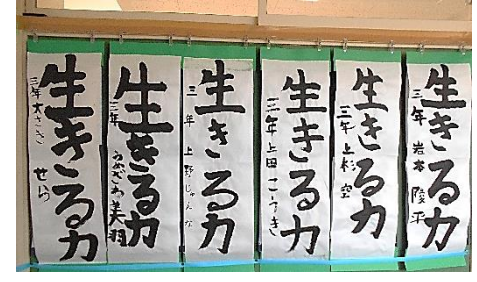 生きる力
三年 岩本 陵平
生きる力
三年 上杉 空
生きる力
三年 上田 こうき
生きる力
三年 上野じゅんな
生きる力
三年 うめざわ美羽
生きる力
三年 大さき